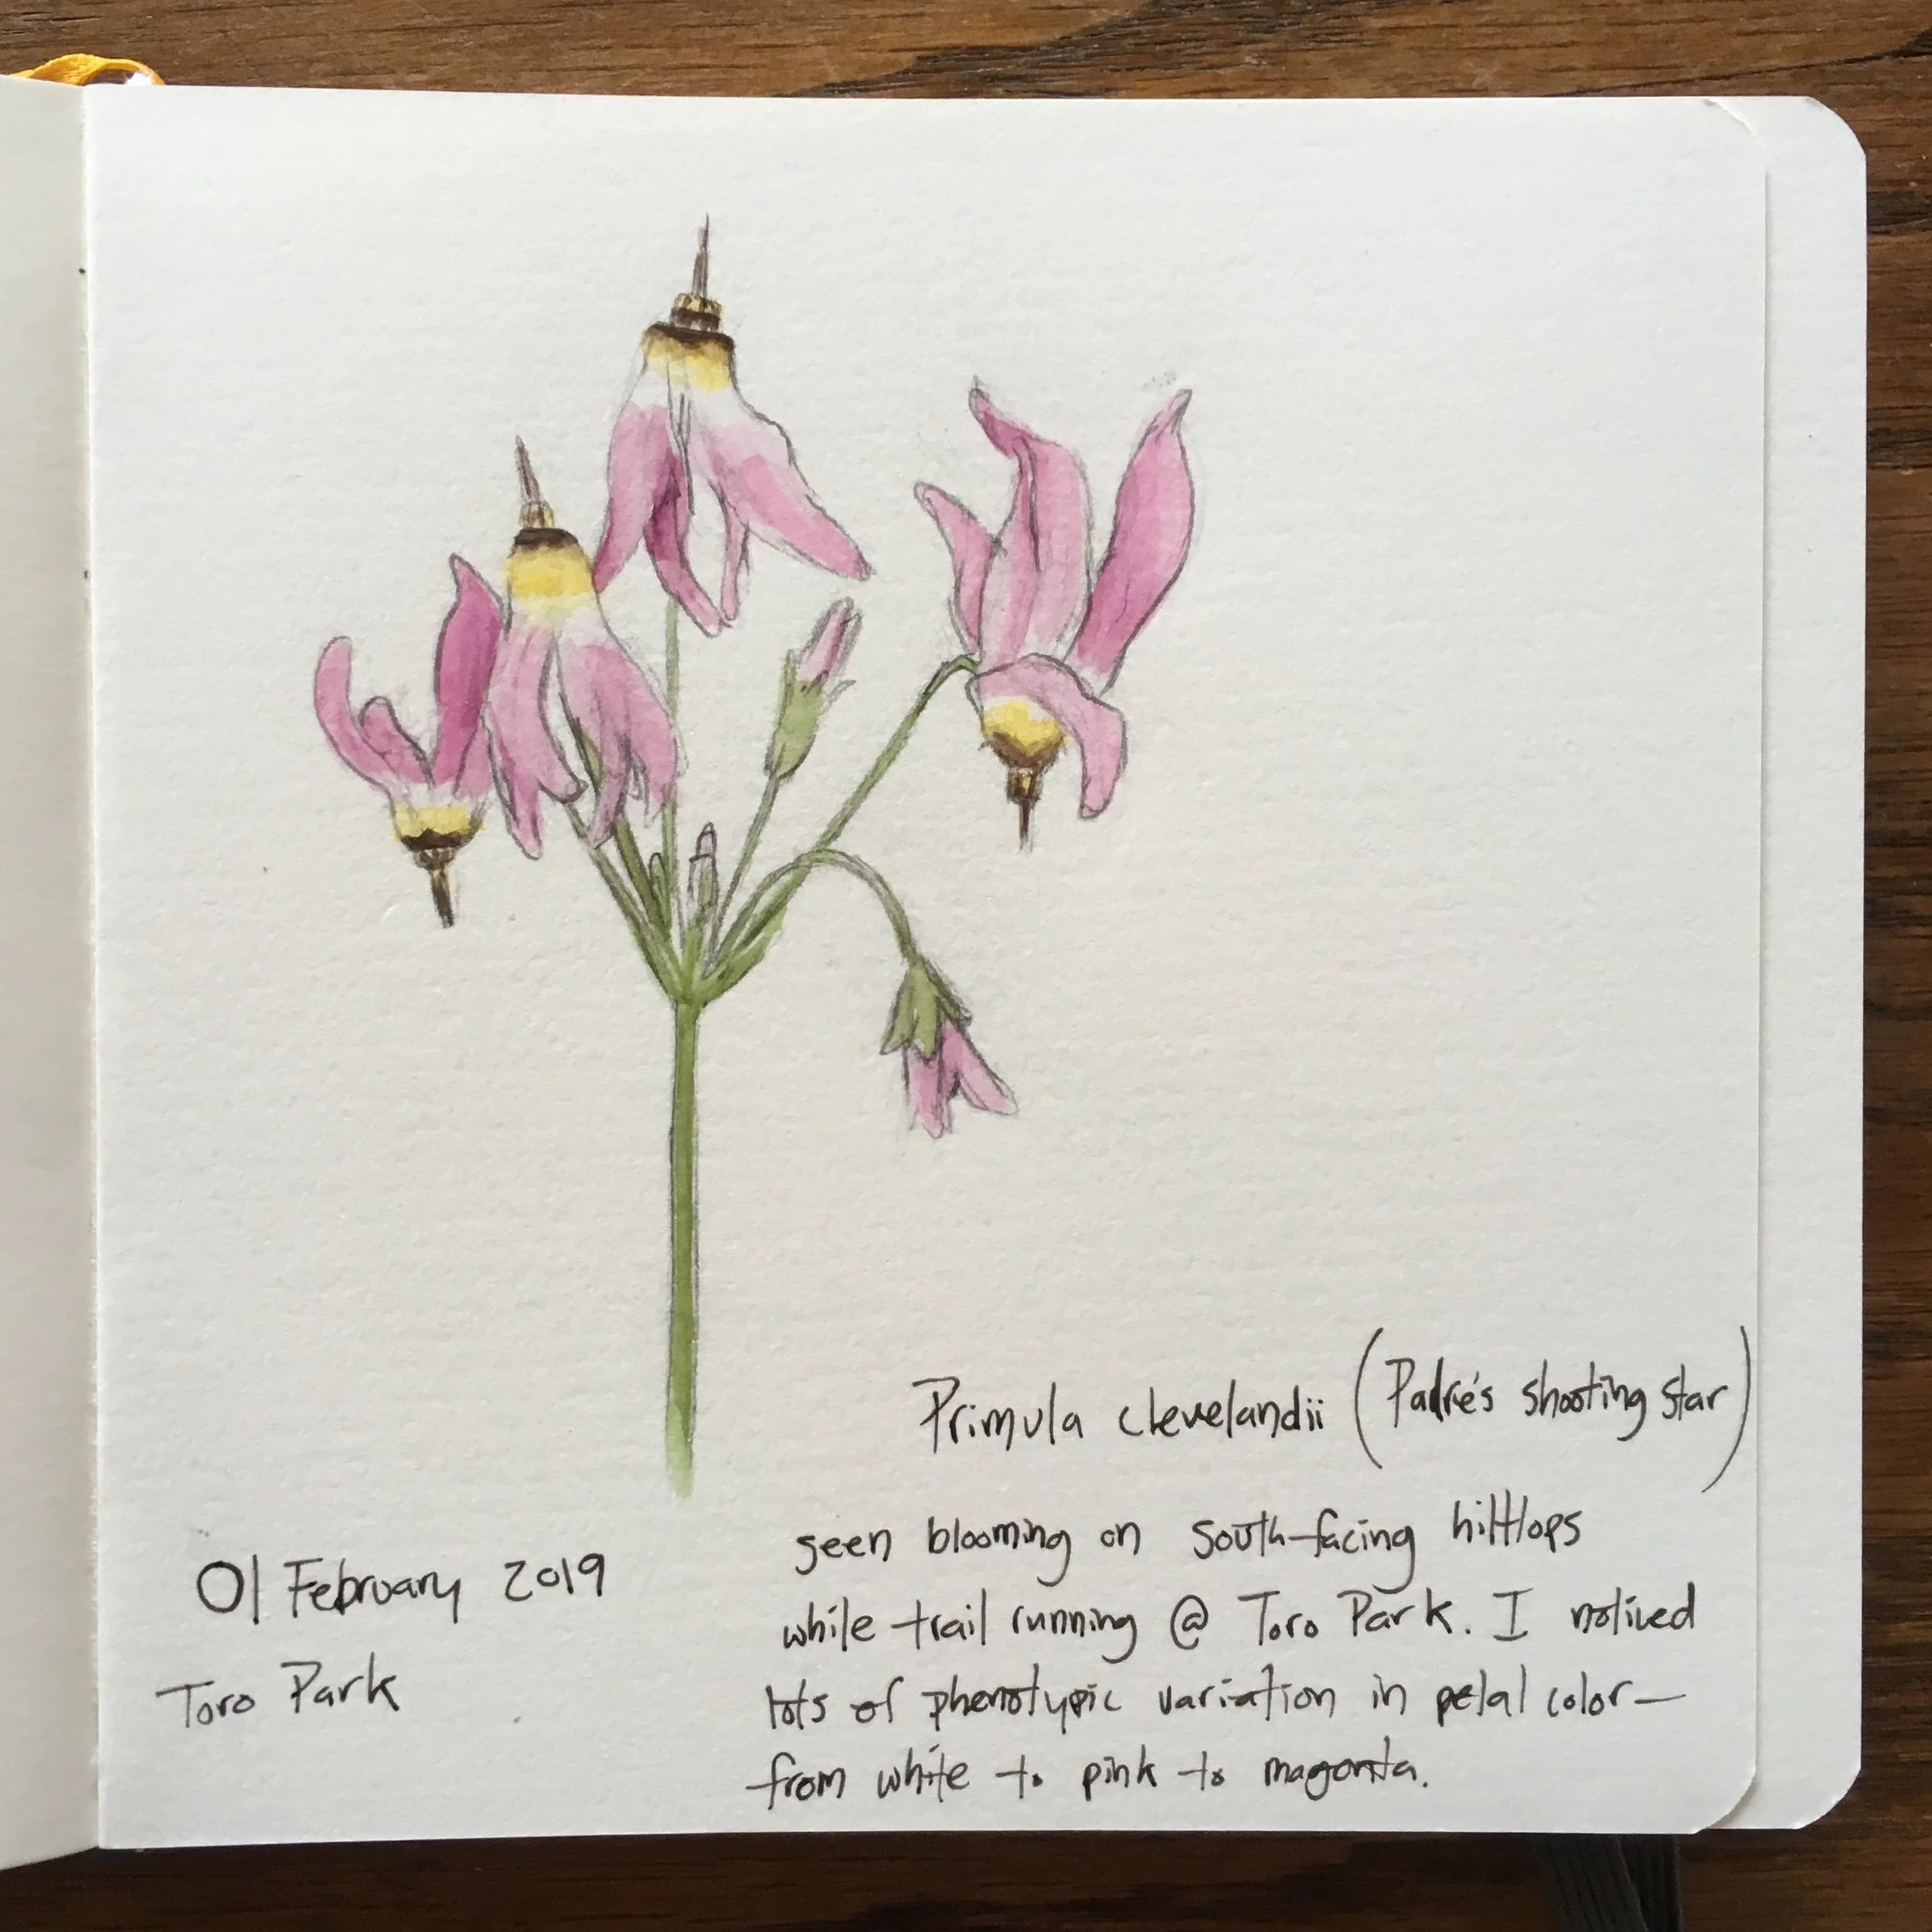 Primula clevelandii (Padre's shooting star)
seen blooming on south-facing hilltops
while trail running @ Toro Park. I noticed
lots of phenotypic variation in petal color—
from white to pink to magenta.
01 February 2019
Toro Park